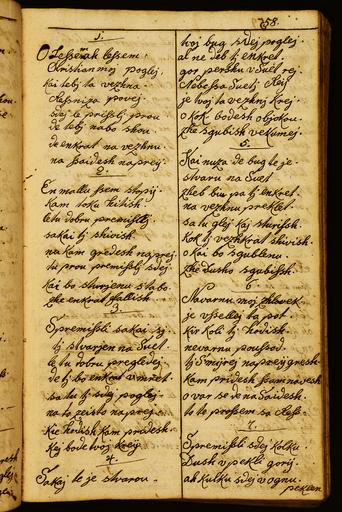 258.
1.
O Lessezhak lessem,
Christian moj poglej,
kai tebi ta vezhna
zhessniza povej.
sdej le premisli prou
de tebi nabo shou
de enkrat na vezhnu
na Saidesh naprej.
2.
En mallu ssem stopij
kam toku hitish.
letu dobru premisli,
sakai ti shivish.
na kam gredesh naprej,
tu prou premisli sdej
kai bo sturjenu stabo
zhe enkrat fallish.
3.
Spremisli sakai si
ti stvarjen na Suet.
le tu dobru pregledej
de ti bo enkrat vmret.
sa tu ti sdej poglej
na to zeisto naprej
Kie hodish kam pridesh.
kej bode tvoj kraj
4.
Sakaj te je stvarou.
tvoj bug sdej poglej
al ne seb ti enkret
gor persheu v Suet rej.
Nebessa Sueti Raj
je tvoj ta vezhni krej.
o kok bodesh objokou.
zhe sgubish vekumej.
5.
Kai nuza de bug te je.
stvaru na Suet
zheb biu pa ti enkret
na vezhnu preklet.
sa tu glej kaj sturish.
kok ti vezhkrat shivish.
o kai bo sgublenu.
zhe dusho sgubish.
6.
Navarnu moj zhlovek
je vsselej ta pot
kir koli ti hodish.
nevarnu poussod
ti Smirej naprej gresh
kam pridesh ssam navesh
o var se de na Saidesh.
to te prossem sa zless.
7.
Spremisli sdej kolku.
Dush v pekli gorij.
ah kulku sdej v ognu.
peklen